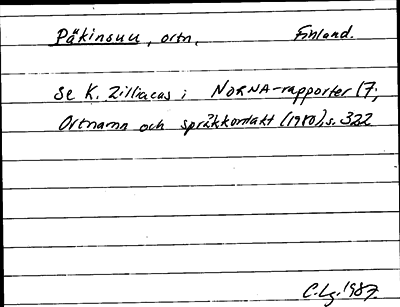 Päkinsuu, ortn. Finland.
se K. Zilliacus i NORNA-rapporter 17;
Ortnamn och språkkontakt (1980), s. 322
C.Lg. 1987.